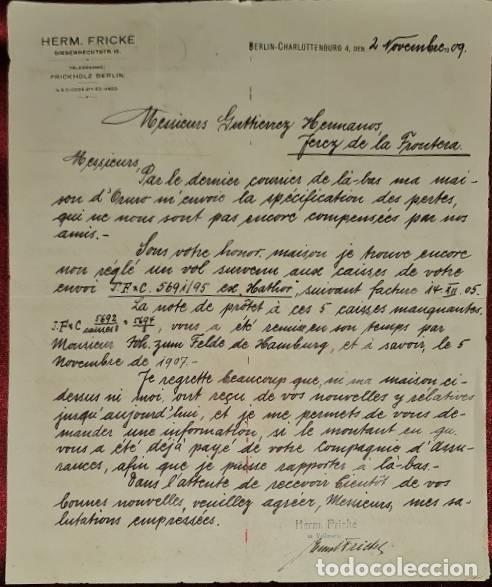 HERM. FRICKE
GIESEBRECHTSTR. 15.
TELEGRAMME:
FRICKHOLZ BERLIN.
A.B.C. CODE 5TH ED. USED
BERLIN-CHARLOTTENBURG 4, DEN 2 Novembre 1909.
Messieurs Guttierrez Hermanos,
Jerez de la Frontera.
Messieurs,
Par le dernier courrier de là-bas ma mai-
son d'Oruro m'envoie la spécification des pertes,
qui ne nous sont pas encore compensées par nos
amis.-
Sous votre honor. maison je trouve encore
non réglé un vol survenu aux caisses de votre
envoi J.F&C. 5691/95 ex Hathor, suivant facture 14 XII. 05.
La note de prêtet à ces 5 caisses manquantes
J.F&C 5692 5694, vous a été remise en son temps par
Monsieur Joh. zum Felde de Hamburg, et à savoir, le 5
Novembre de 1907.-
Je regrette beaucoup que, ni ma maison ci-
dessus ni moi, ont reçu de vos nouvelles y relatives
jusqu'aujourd'hui, et je me permets de vous de-
mander une information, si le montant en qu.
vous a été déjà payé de votre Compagnie d'Assu-
rances, afin que je puisse rapporter à là-bas.-
Dans l'attente de recevoir bientôt de vos
bonnes nouvelles, veuillez agréer, Messieurs, mes sa-
lutations empressées.
Herm. Fricke
todocoleccion